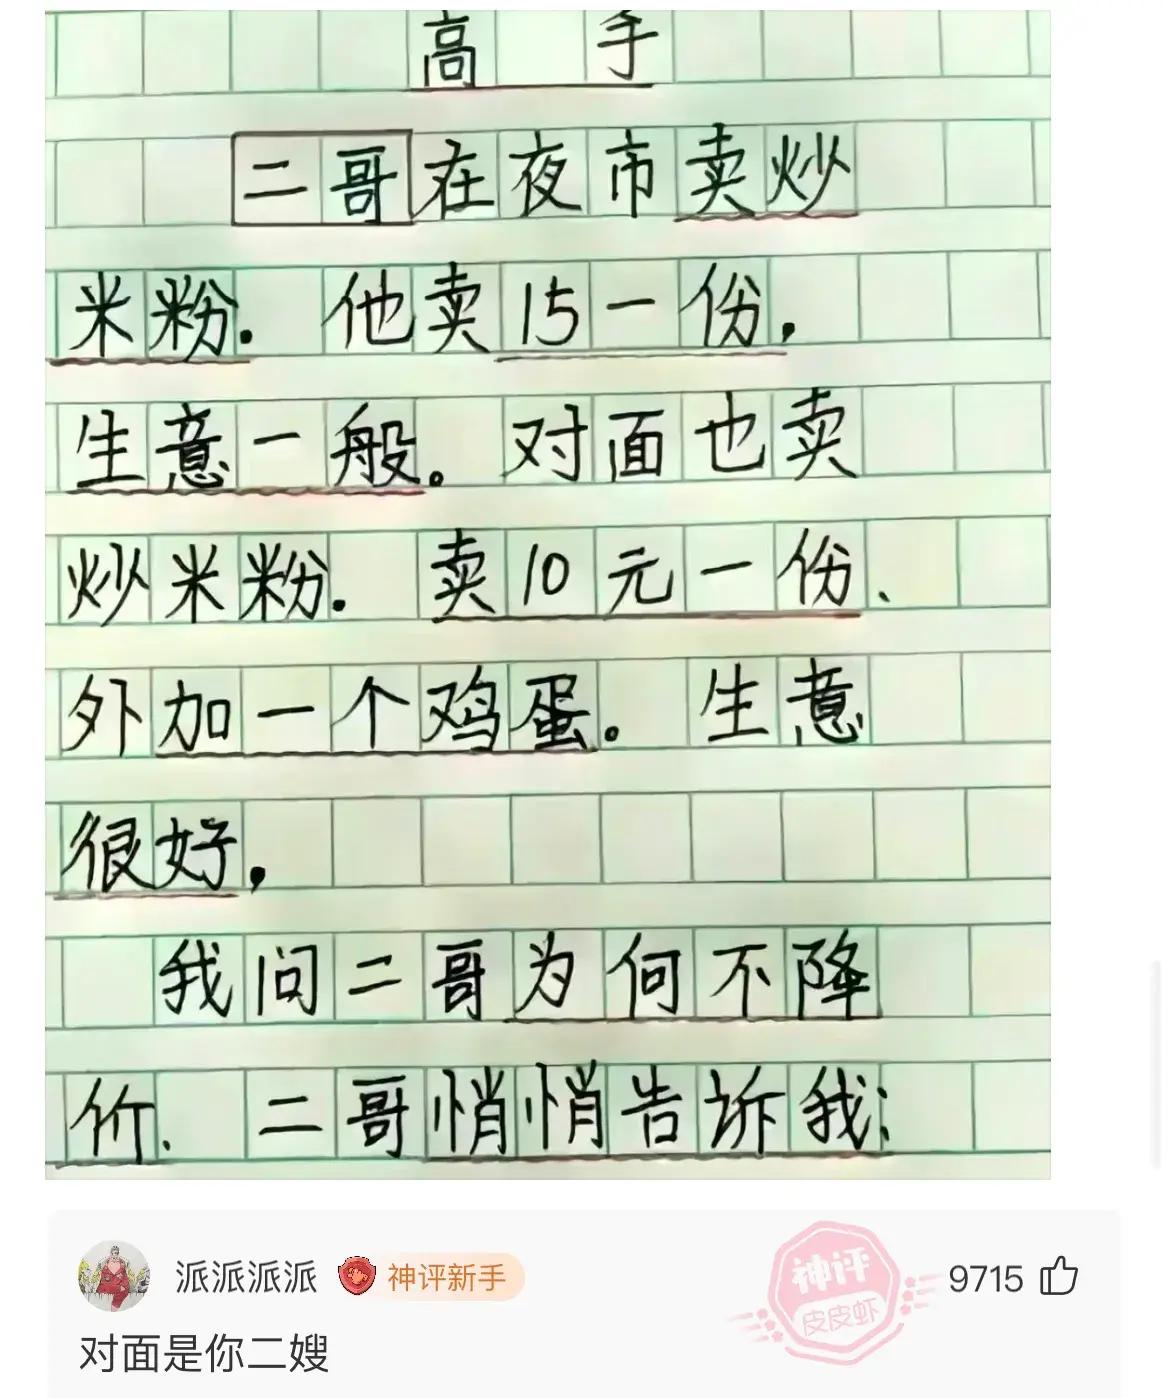 高手
二哥在夜市卖炒
米粉. 他卖15一份,
生意一般。对面也卖
炒米粉. 卖10元一份、
外加一个鸡蛋。生意
很好,
我问二哥为何不降
价. 二哥悄悄告诉我:
派派派派 神评新手
神评
皮皮虾
9715
对面是你二嫂